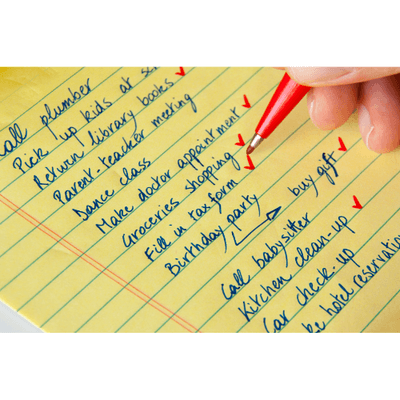 Call plumber
Pick up kids at
Return library books
Parent-teacher meeting
Dance class
Make doctor appointment
Groceries shopping
Fill in tax form
Birthday party
buy gift
Call babysitter
Kitchen clean-up
Car check-up
hotel reservation